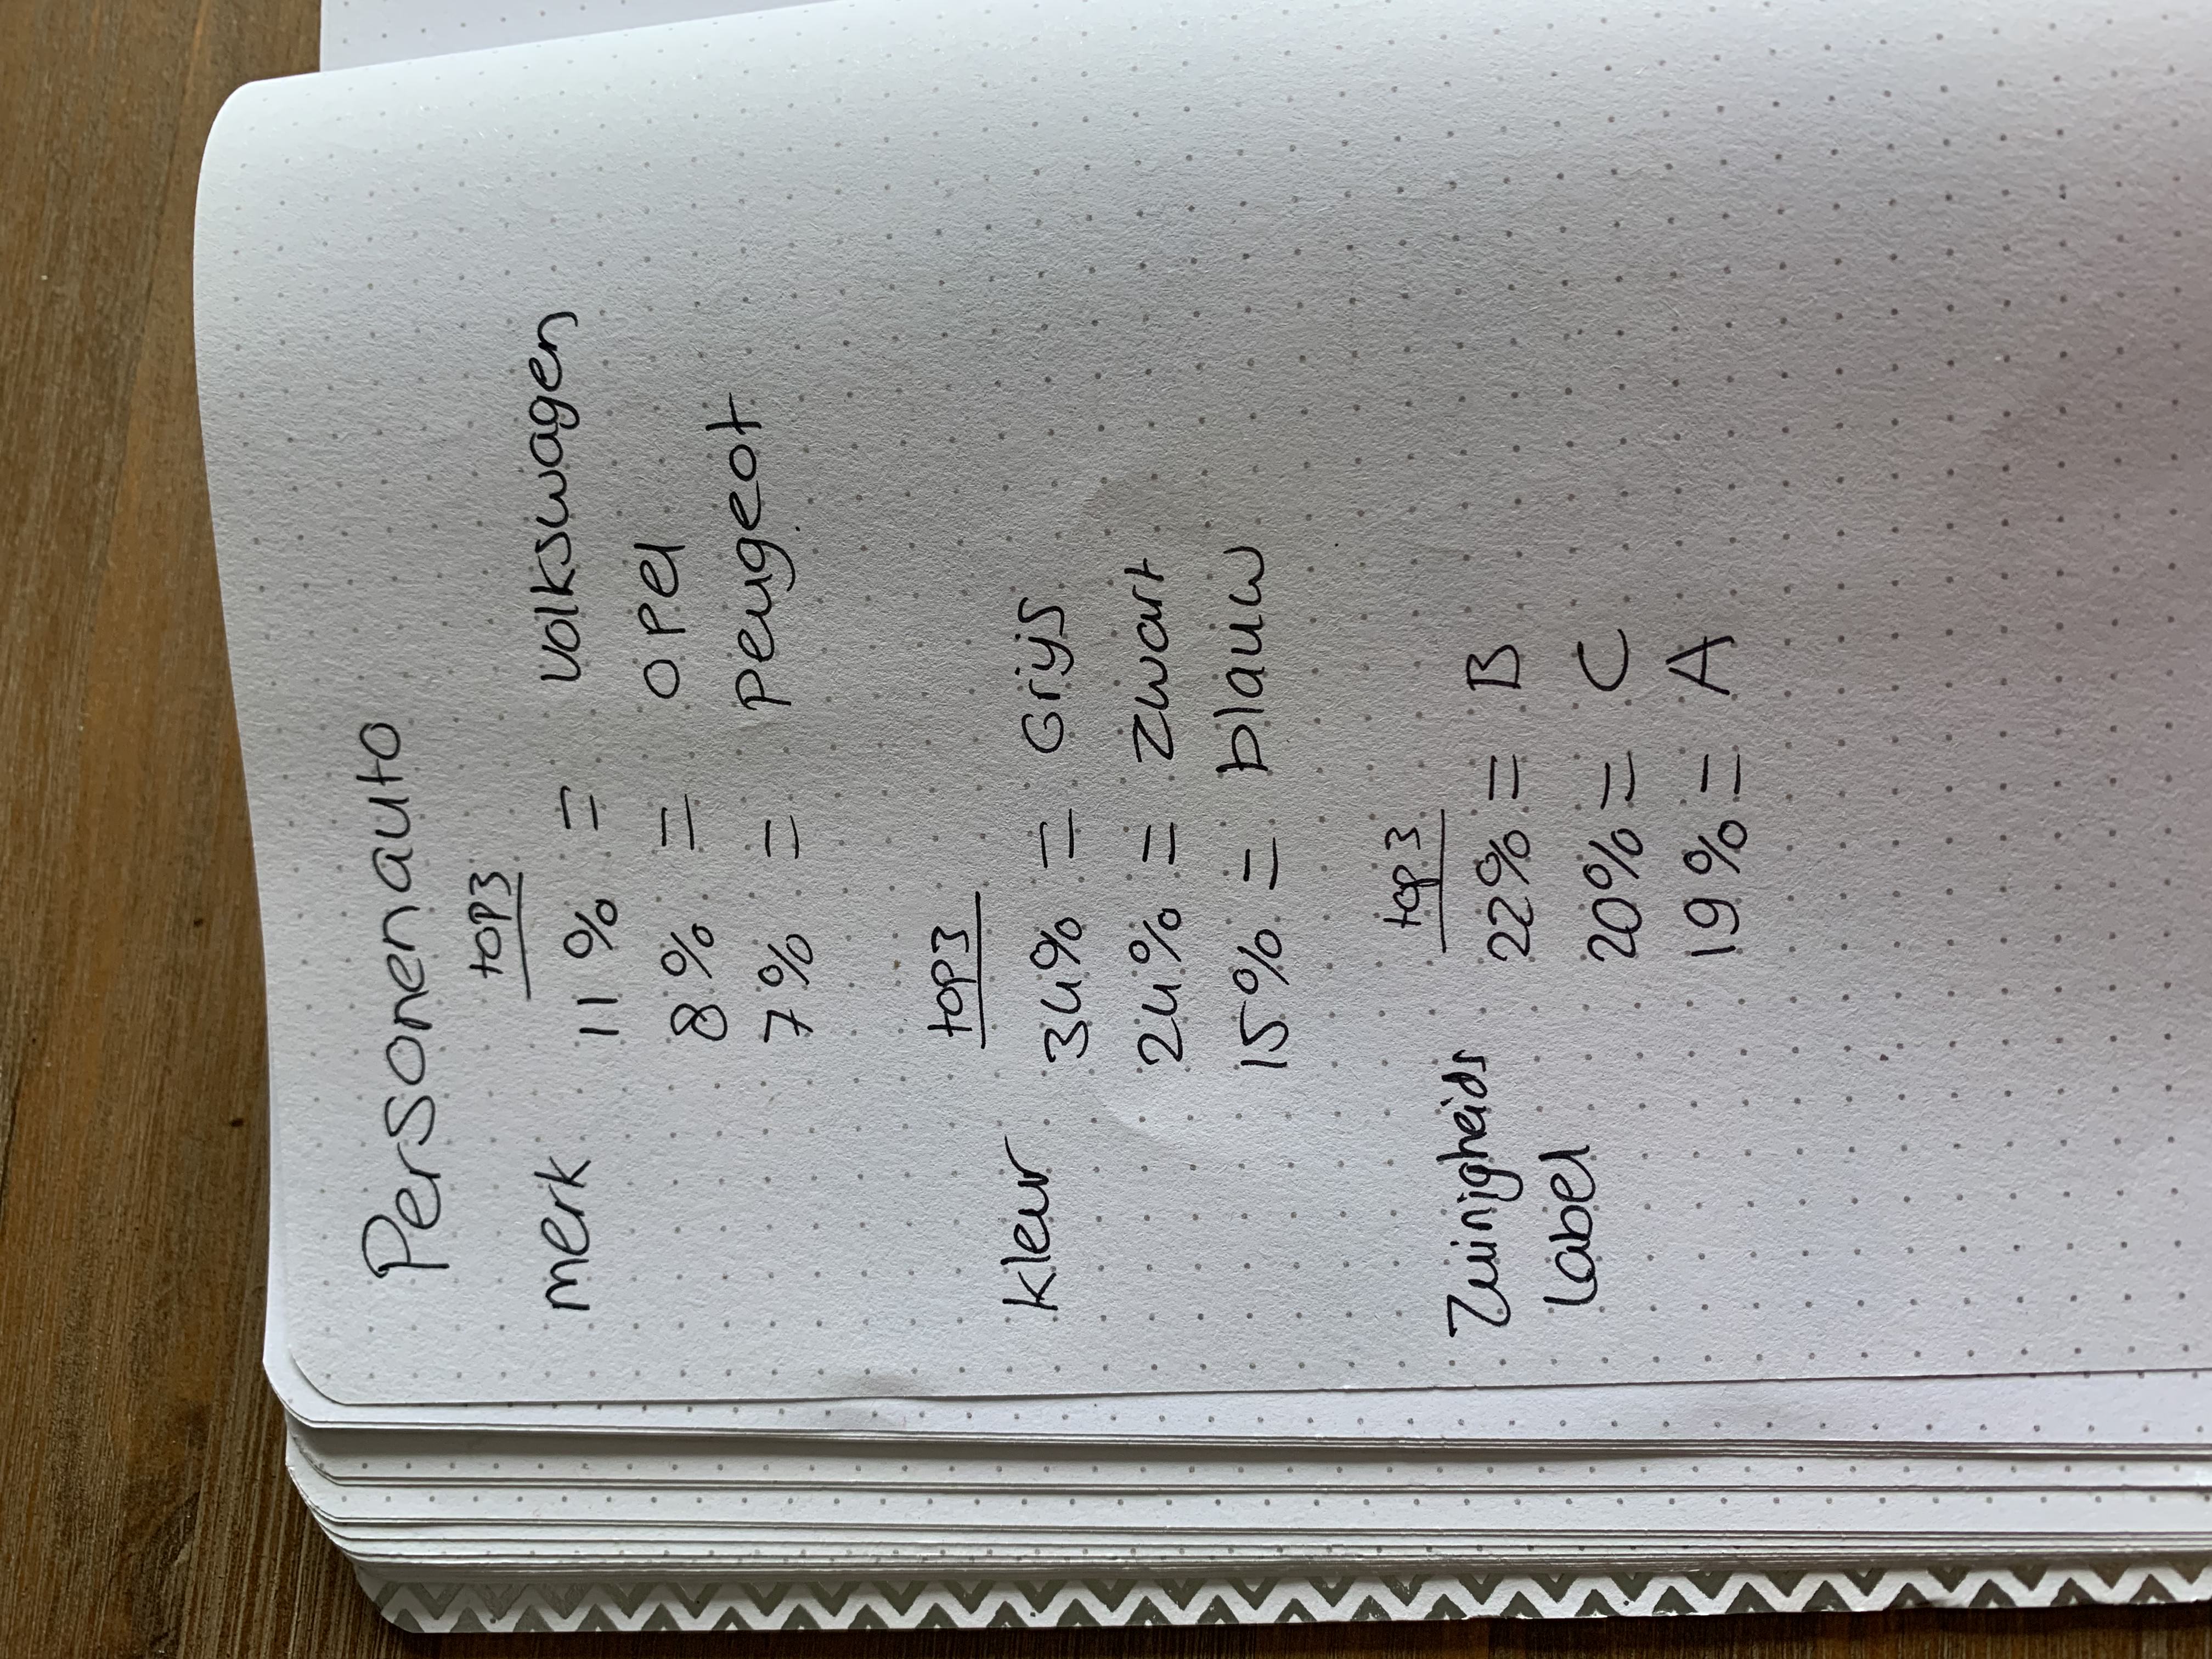 Personenauto
top3
merk 11% = Volkswagen
8% = Opel
7% = Peugeot
top3
kleur 34% = Grijs
24% = Zwart
15% = blauw
top3
Zuinigheids 22% = B
Label 20% = C
19% = A